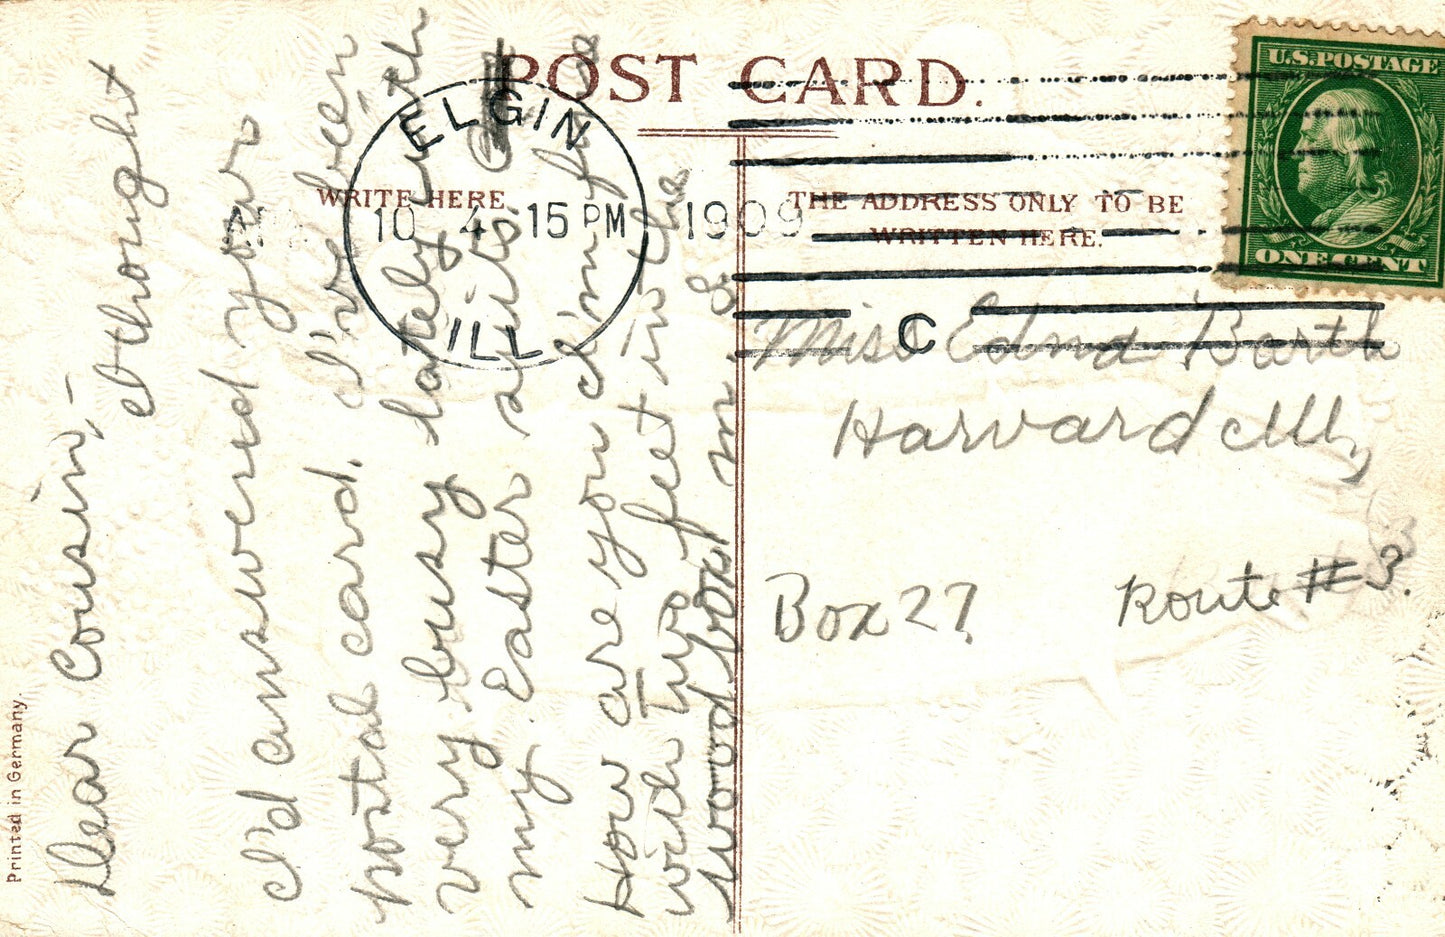 POST CARD.
WRITE HERE.
THE ADDRESS ONLY TO BE
WRITTEN HERE.
U.S.POSTAGE
ONE CENT
ELGIN
APR 10 4 15 PM 1909
ILL
C
Dear Cousin,-
I thought
I'd answered your
postal card. I've been
very busy lately with
my Easter suit.
How are you I'm fine
with two feet in the
wood box M. S.
Miss Edna Barth
Harvard Ill,
Box 27 Route #3.
Printed in Germany.